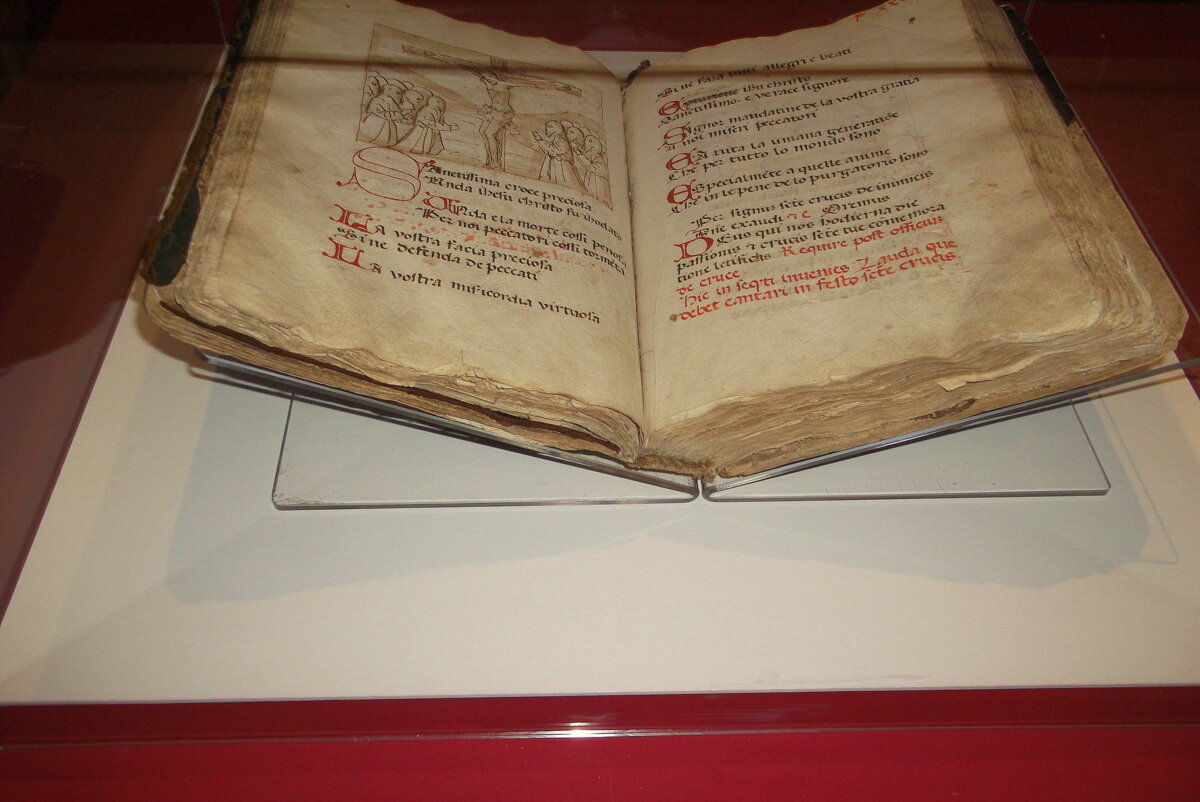 Sanctissima croce preciosa
Unda ihesu christo fu ihodato
Cruda e la morte cossi penosa
Per noi peccatori cossi torméta
LA vostra facia preciosa
Si ne defenda de peccati
LA vostra misicordia virtuosa
Si ne faza tuti allegri e beati
ihu christo
Sanctissimo e verace signore
Signor mandatine de la vostra gratia
A noi miseri peccatori
EA tuta la umana generatiōe
Che per tutto lo mondo sono
ESpecialméte a quelle anime
Che in le pene de lo purgatorio sono
Per signuʒ sctē crucis de inimicis
Dñe exaudi ⁊ c̄ Oremus
DEus qui nos hodierna die
passionis ⁊ crucis sctē tue cōmemora
tione letificas Require post officiuʒ
de cruce
Hic in seqti invenies Lauda que
debet cantari in festo sctē crucis